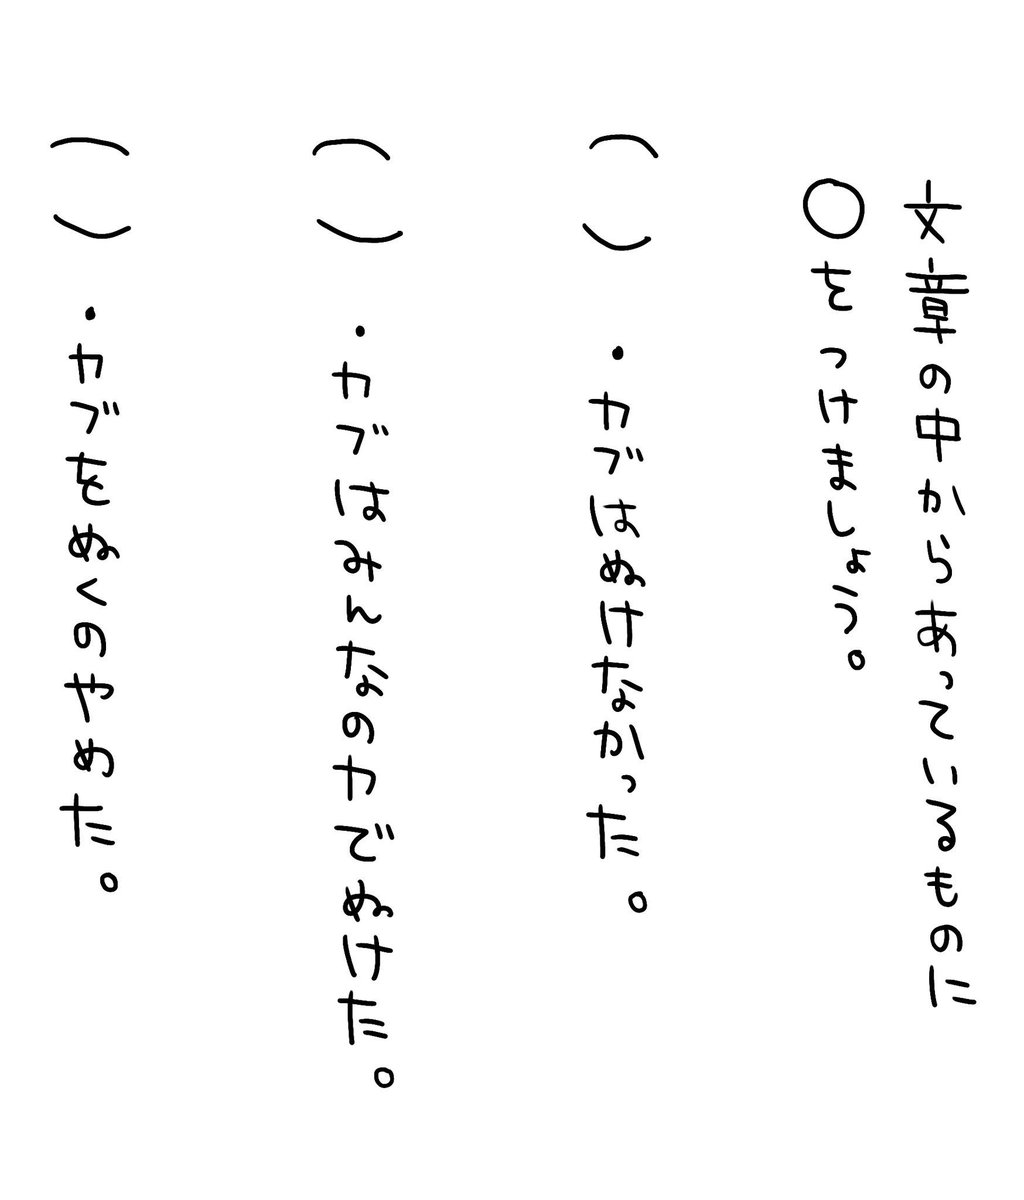 文章の中からあっているものに
○をつけましょう。
（　）・カブはぬけなかった。
（　）・カブはみんなのカでぬけた。
（　）・カブをぬくのやめた。